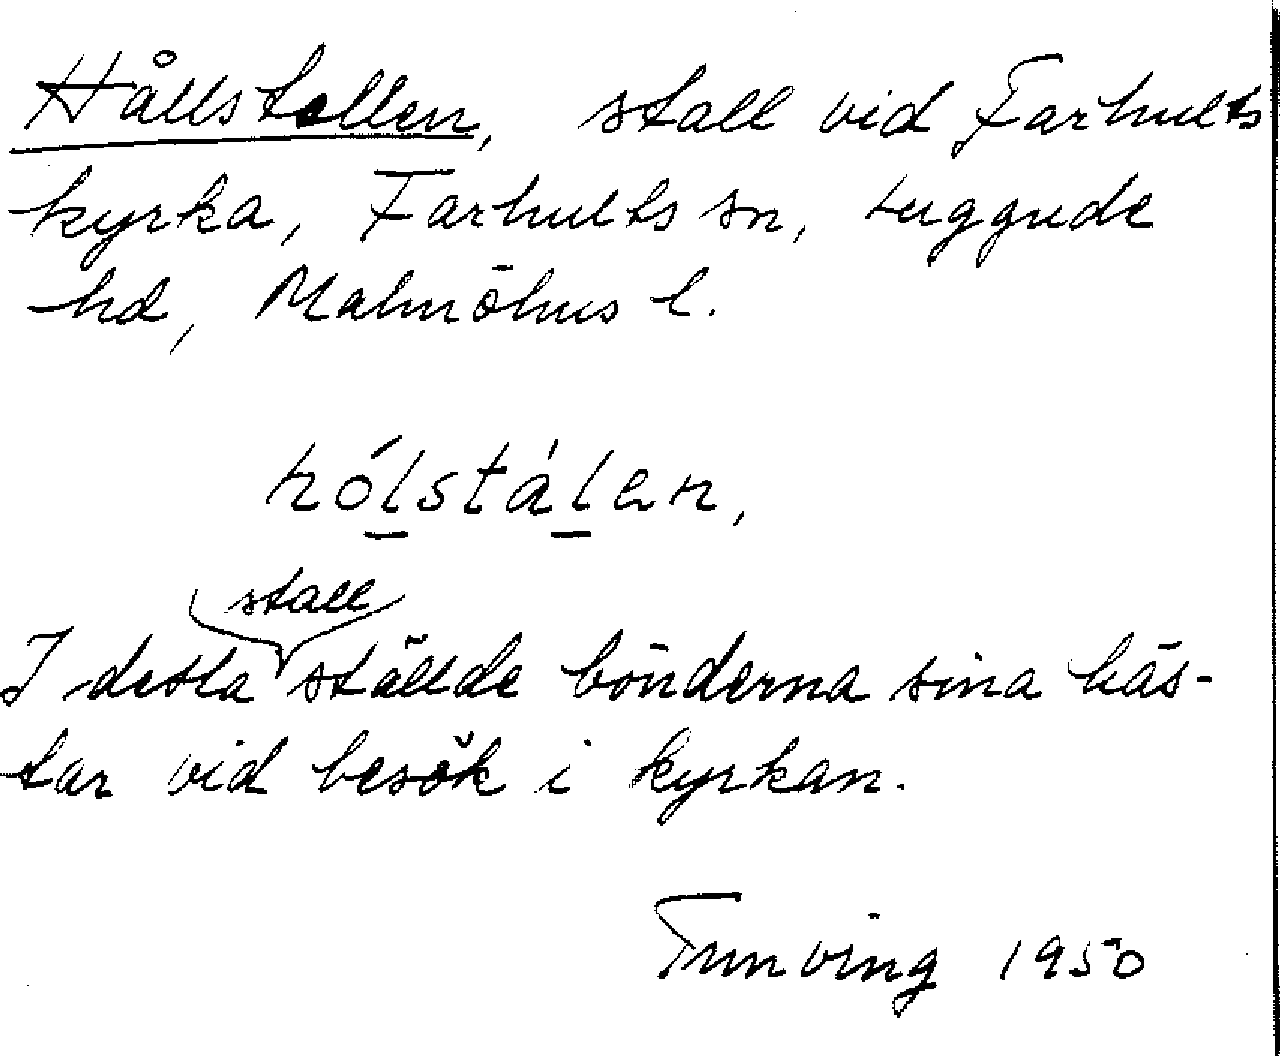 Hållstallen, stall vid Farhults
kyrka, Farhults sn, Luggude
hd, Malmöhus l.
hólstálen,
stall
I detta ställde bönderna sina häs-
tar vid besök i kyrkan.
1950